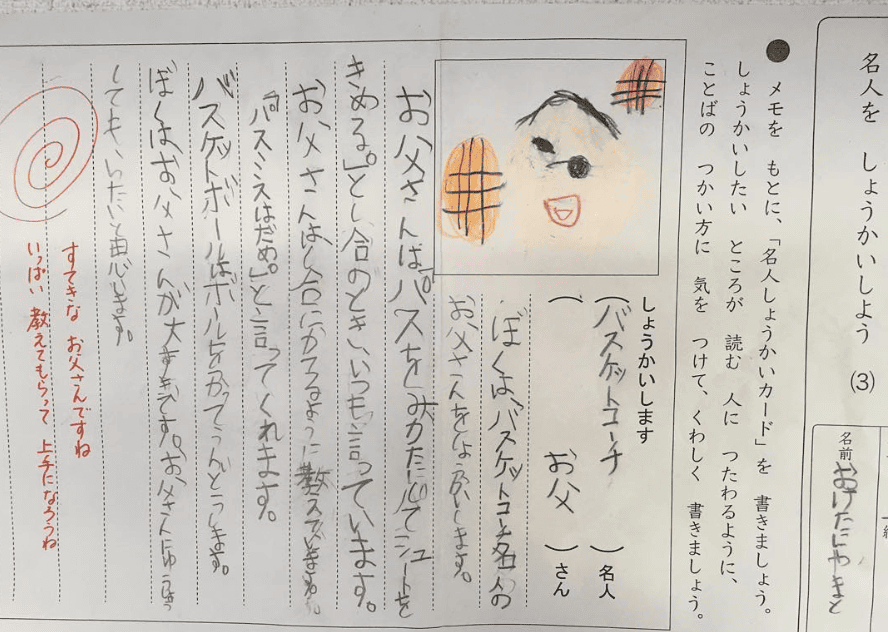 名人を しょうかいしよう (3)
名前
おけたにやまと
● メモを もとに、「名人しょうかいカード」を 書きましょう。
しょうかいしたい ところが 読む 人に つたわるように、
ことばの つかい方に 気を つけて、くわしく 書きましょう。
しょうかいします
(バスケットコーチ)名人
( お父 )さん
ぼくは、バスケットコーチ名人の
お父さんをしょうかいします。
お父さんは「パスを
きめる。」とし合のときいつも言っています。
お父さんはし合にかてるように教えて
「パスミスはだめ。」と言ってくれます。
バスケットボールはボールをつかってうんどうします。
ぼくはお父さんが大すきです。お父さんに
してもらいたいと思います。
すてきな お父さんですね
いっぱい 教えてもらって 上手になろうね